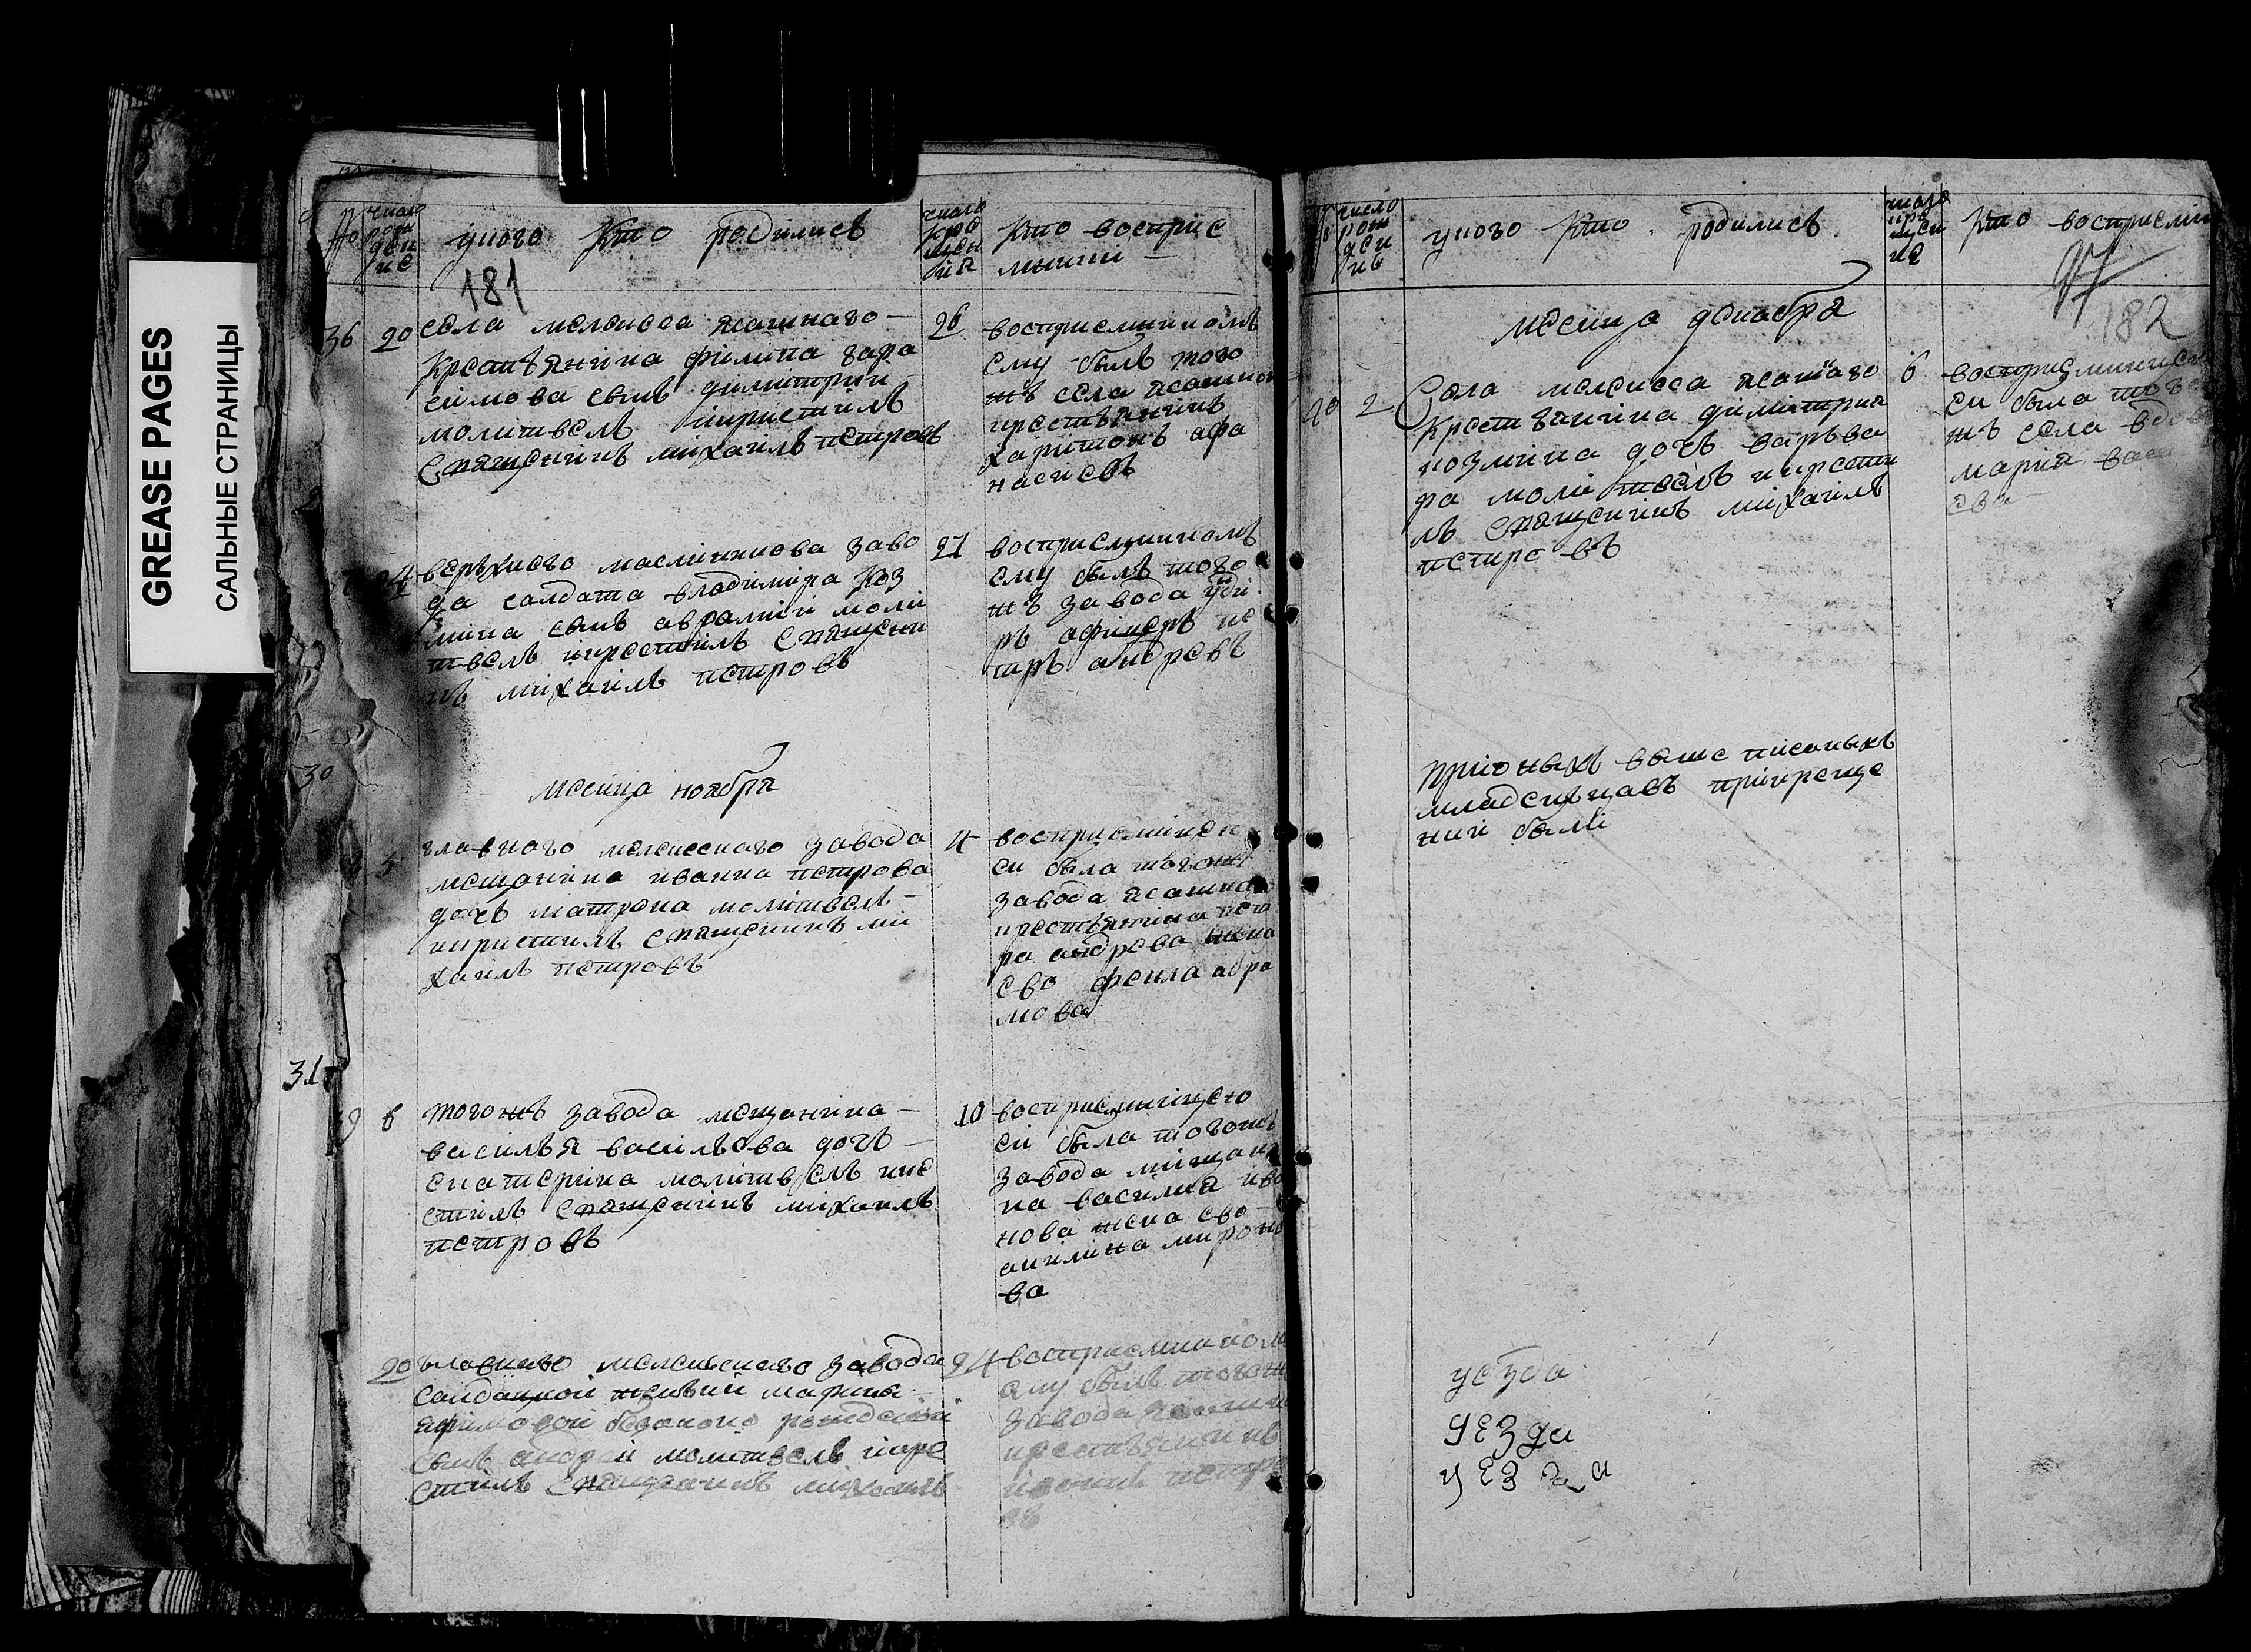 GREASE PAGES
САЛЬНЫЕ СТРАНИЦЫ
число
рож
дси
ис
уного Кто родились
181
число
кре
щен
ия
кто восприе
мники
36 20
села мелекеса ясашнаго
крестьянина филипа гара
симова сынъ димитрий
молитвелъ икристилъ
священникъ михаилъ петровъ
26
восприемникомъ
ему былъ того
жъ села ясашной
крестьянинъ
харитонъ афа
насиевъ
24
верхнего маслинкова заво
да салдата владимира коз
мина сынъ аврамий моли
твелъ икрестилъ священи
къ михаилъ петровъ
27
восприемникомъ
ему былъ того
жъ завода
ръ афицеръ пе
таръ андревъ
30
месяца ноября
3
главного мелекескаго завода
мещанина ивана петрова
дочь матрона молитвелъ
икристилъ священикъ ми
хаилъ петровъ
4
восприемницею
ей была тогожъ
завода ясашнаго
крестьянина пет
ра андрева жена
ево фекла абра
мова
31
9 6
тогожъ завода мещанина
василья васильева дочь
екатерина молитвелъ ике
стилъ священикъ михаилъ
петровъ
10
восприемницею
ей была тогожъ
завода мищани
на василия ива
нова жена ево
акилина мироно
ва
20
главнаго мелекескаго завода
салдацкой женкий марины
ефимовой безаконо рожденой
сынъ андрей молитвелъ икре
стилъ священикъ михаилъ
24
восприемником
ему былъ тогож
завода
крестьянинъ
петро
въ
число
рож
дени
ия
уного кто родились
число
кре
щени
ие
кто восприемни
97
182
месяца декабря
40 2
Села мелекеса ясашаго
крестьянина димитриа
козмина дочь варъва
ра молитвелъ икрести
лъ священикъ михаилъ
петровъ
6
восприемницею
ей была того
жъ села вдова
мария васи
ева
прионыхъ выше писаныхъ
младенцавъ прикреще
ний были
уезда
уезда
уезда